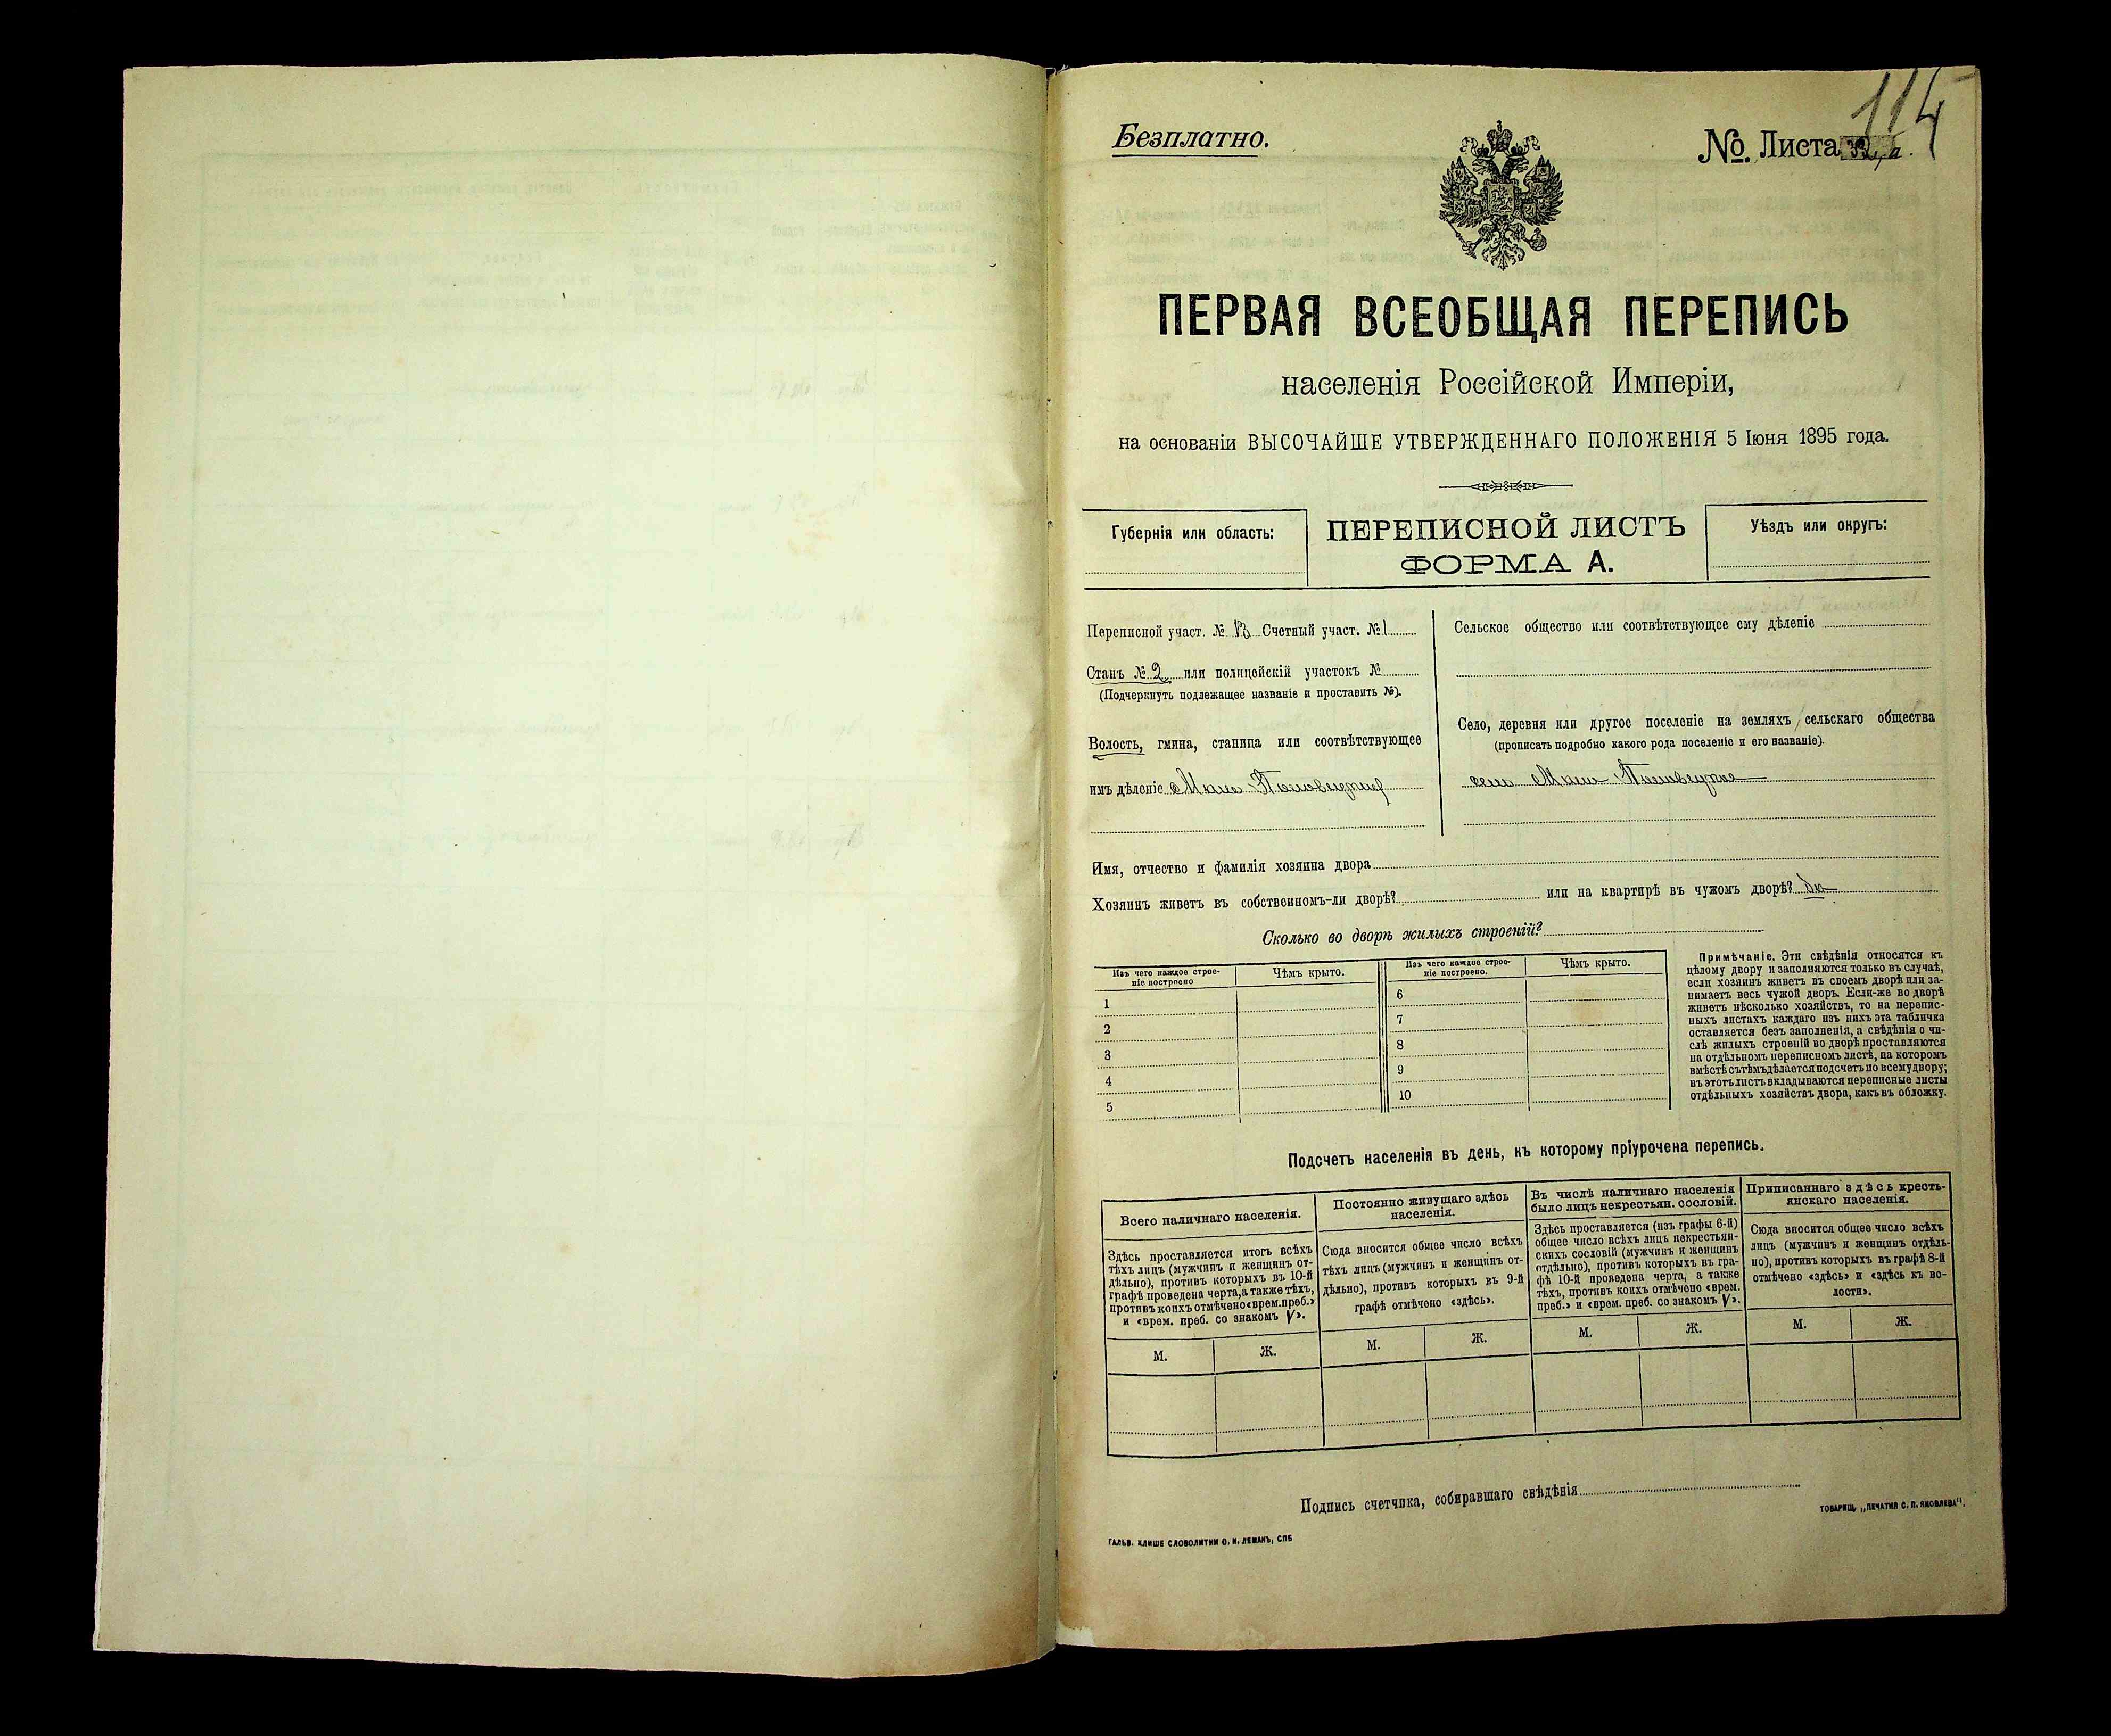 114
Безплатно.
№ Листа
ПЕРВАЯ ВСЕОБЩАЯ ПЕРЕПИСЬ
населенія Россійской Имперіи,
на основаніи ВЫСОЧАЙШЕ УТВЕРЖДЕННАГО ПОЛОЖЕНІЯ 5 Іюня 1895 года.
Губернія или область:
ПЕРЕПИСНОЙ ЛИСТЪ
ФОРМА А.
Уѣздъ или округъ:
Переписной участ. № 13 Счетный участ. № 1
Станъ № 2 или полицейскій участокъ №
(Подчеркнуть подлежащее названіе и проставить №).
Волость, гмина, станица или соотвѣтствующее
имъ дѣленіе Мало Половецкая
Сельское общество или соотвѣтствующее ему дѣленіе
Село, деревня или другое поселеніе на земляхъ сельскаго общества
(прописать подробно какого рода поселеніе и его названіе).
село Мало Половецкое
Имя, отчество и фамилія хозяина двора
Хозяинъ живетъ въ собственномъ-ли дворѣ? или на квартирѣ въ чужомъ дворѣ? да
Сколько во дворѣ жилыхъ строеній?
Изъ чего каждое строе-
ніе построено
Чѣмъ крыто.
1
2
3
4
5
Изъ чего каждое строе-
ніе построено.
Чѣмъ крыто.
6
7
8
9
10
Примѣчаніе. Эти свѣдѣнія относятся къ
цѣлому двору и заполняются только въ случаѣ,
если хозяинъ живетъ въ своемъ дворѣ или за-
нимаетъ весь чужой дворъ. Если-же во дворѣ
живетъ нѣсколько хозяйствъ, то на перепис-
ныхъ листахъ каждаго изъ нихъ эта табличка
оставляется безъ заполненія, а свѣдѣнія о чи-
слѣ жилыхъ строеній во дворѣ проставляются
на отдѣльномъ переписномъ листѣ, на которомъ
вмѣстѣ съ тѣмъ дѣлается подсчетъ по всему двору;
въ этотъ листъ вкладываются переписные листы
отдѣльныхъ хозяйствъ двора, какъ въ обложку.
Подсчетъ населенія въ день, къ которому пріурочена перепись.
Всего наличнаго населенія.
Здѣсь проставляется итогъ всѣхъ
тѣхъ лицъ (мужчинъ и женщинъ от-
дѣльно), противъ которыхъ въ 10-й
графѣ проведена черта, а также тѣхъ,
противъ коихъ отмѣчено «врем. преб.»
и «врем. преб. со знакомъ V».
М. Ж.
Постоянно живущаго здѣсь
населенія.
Сюда вносится общее число всѣхъ
тѣхъ лицъ (мужчинъ и женщинъ от-
дѣльно), противъ которыхъ въ 9-й
графѣ отмѣчено «здѣсь».
М. Ж.
Въ числѣ наличнаго населенія
было лицъ некрестьян. сословій.
Здѣсь проставляется (изъ графы 6-й)
общее число всѣхъ лицъ некрестьян-
скихъ сословій (мужчинъ и женщинъ
отдѣльно), противъ которыхъ въ гра-
фѣ 10-й проведена черта, а также
тѣхъ, противъ коихъ отмѣчено «врем.
преб.» и «врем. преб. со знакомъ V».
М. Ж.
Приписаннаго здѣсь кресть-
янскаго населенія.
Сюда вносится общее число всѣхъ
лицъ (мужчинъ и женщинъ отдѣль-
но), противъ которыхъ въ графѣ 8-й
отмѣчено «здѣсь» и «здѣсь къ во-
лости».
М. Ж.
Подпись счетчика, собиравшаго свѣдѣнія
ГАЛЬВ. КЛИШЕ СЛОВОЛИТНИ О. И. ЛЕМАНЪ, СПБ
ТОВАРИЩ. „ПЕЧАТНЯ С. П. ЯКОВЛЕВА".